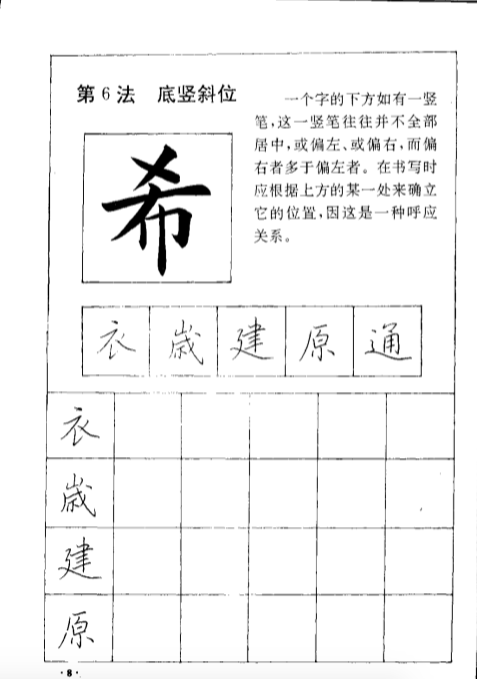 第6法 底竖斜位
一个字的下方如有一竖
笔，这一竖笔往往并不全部
居中，或偏左、或偏右，而偏
右者多于偏左者。在书写时
应根据上方的某一处来确立
它的位置，因这是一种呼应
关系。
希
衣 歳 建 原 通
衣
歳
建
原
·8·